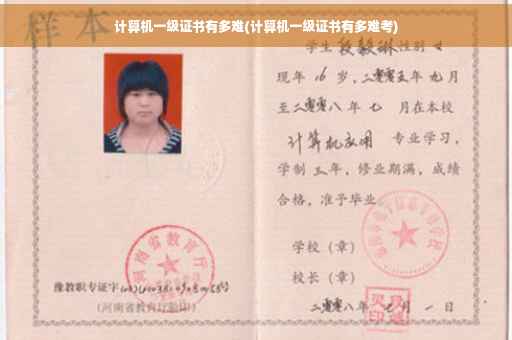 计算机一级证书有多难(计算机一级证书有多难考)
样本
学生段毅琳性别女
现年16岁,二零零五年九月
至二零零八年七月在本校
计算机应用专业学习,
学制三年,修业期满,成绩
合格,准予毕业
学校(章)
校长(章)
二零零八年七月一日
河南省教育厅
豫教职专证字
(河南省教育厅验印)